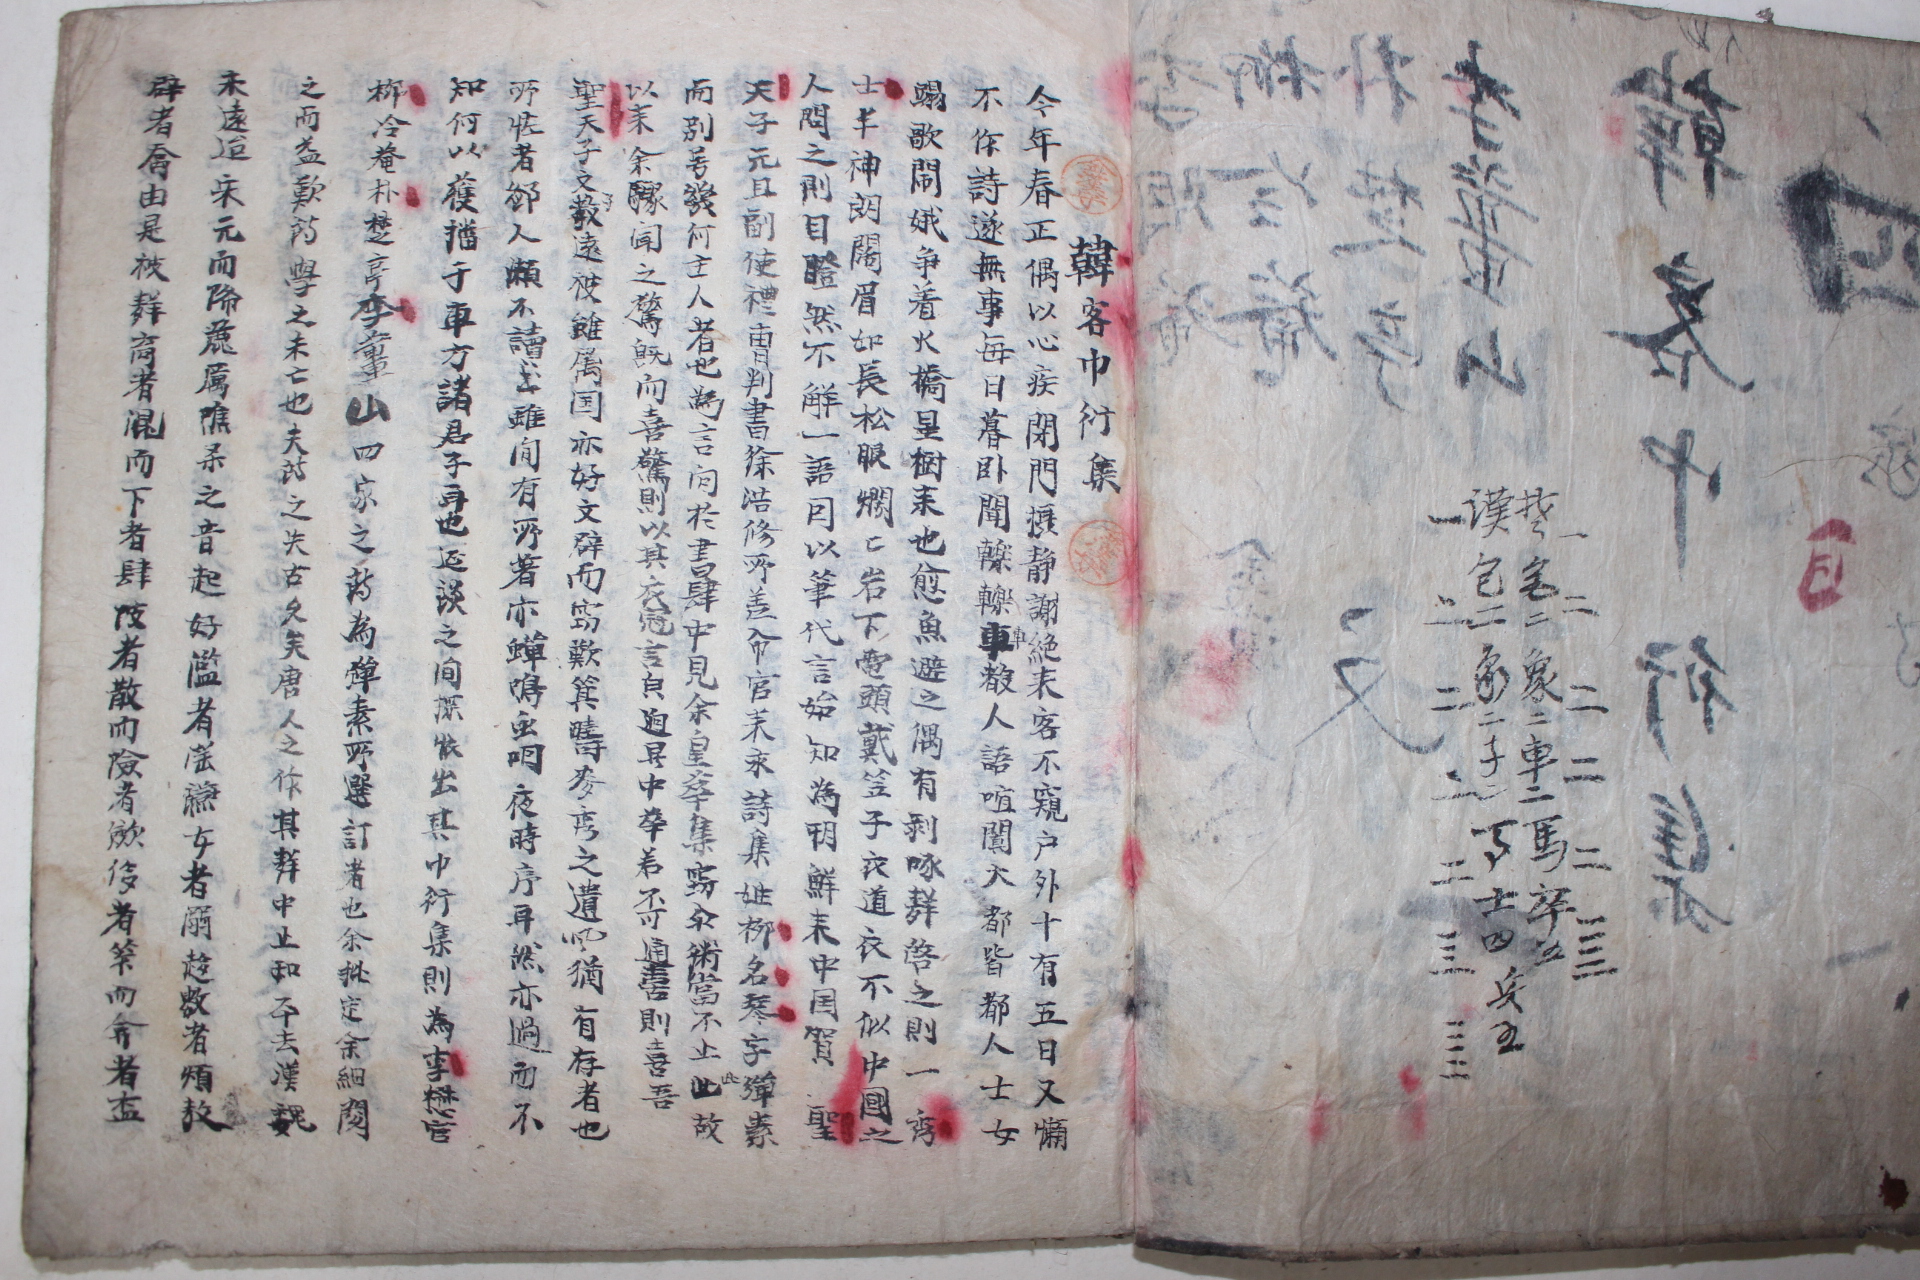 韓客巾衍集
今年春正偶以心疾閉門攝靜謝絕来客不窺户外十有五日又懶
不作詩遂無事每日暮卧聞轢轢車轂人語喧闐大都皆都人士女
踢歌鬧娥爭着火橋星樹来也愈魚避之偶有剥啄群啓之則一秀
士羊神朗闊眉如長松眼爛〻岩下電頭戴笠子衣道衣不似中國之
人問之則目瞪然不解一語因以筆代言始知為朝鮮来中国賀聖
天子元旦副使禮曹判書徐浩修所差命官来求詩集姓柳名琴字彈素
而别号幾何主人者也為言向於書肆中見余皇華集竊余術當不止此故
以来余驟聞之驚既而喜驚則以其衣冠言貌逈異中華若不可通書則喜吾
聖天子文教遠被雖属国亦好文辞而窃歎箕疇麥秀之遺風猶有存者也
所恠者鄙人懶不讀書雖间有所著亦蟬鳴虫吟夜時序再然亦過而不
知何以獲播于車方諸君子再也延談之间探懷出其巾衍集則為李懋官
柳冷菴朴楚亭李薑山四家之詩為彈素所選訂者也余批定余細閱
之而益歎詩學之未亡也夫詩之失古久矣唐人之作其群中止和平去漢魏
未遠迨宋元而降麁厲噍柔之音起好濫者滛燕女者溺趍敖者煩敖
辟者喬由是被群高者混而下者肆陂者散而險者歛侈者筞而弇者盍
四
韓客巾衍集
李薑山
朴楚亭
柳冷菴
李炯菴
又
楚宫二象二車二馬卒五
漢包二象二子二丁士四兵五